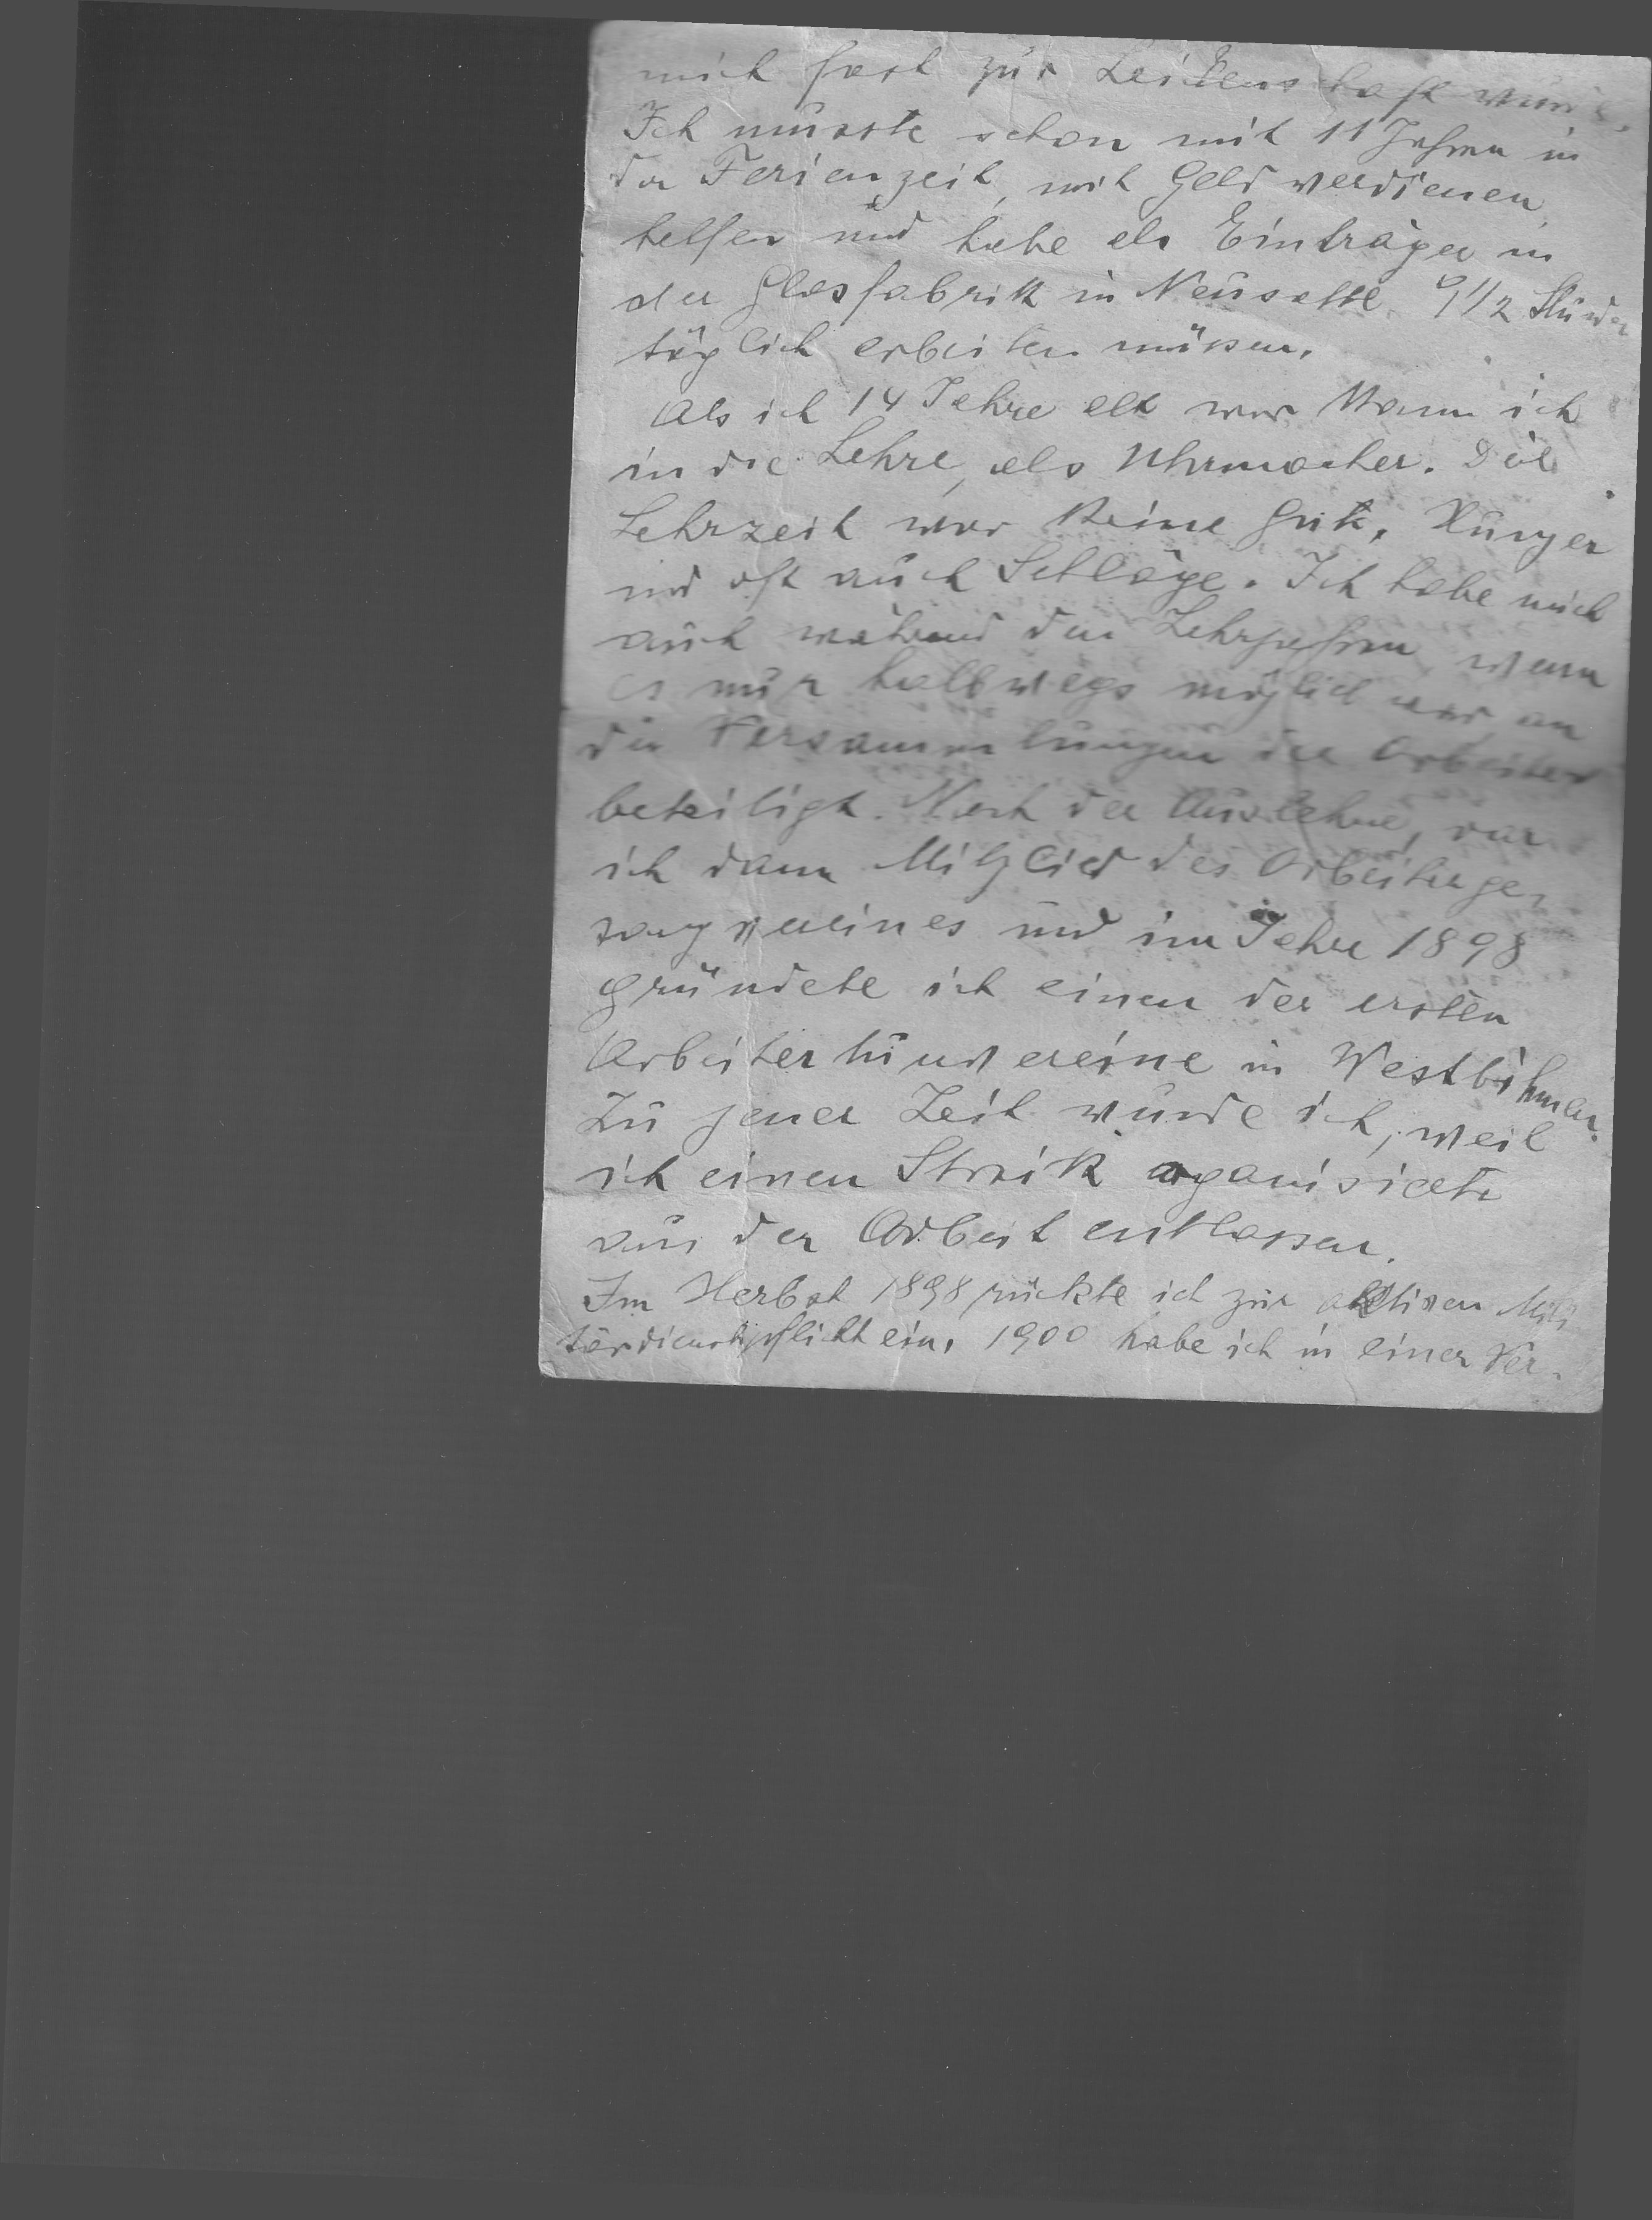 mich fast zur Leidenschaft wurde.
Ich musste schon mit 11 Jahren in
der Ferienzeit, mit Geld verdienen
helfen und habe als Einträger in
der Glasfabrik in Neusattl 9 1/2 Stunden
täglich arbeiten müssen.
Als ich 14 Jahre alt war kam ich
in die Lehre, als Uhrmacher. Die
Lehrzeit war keine gute, Hunger
und oft auch Schläge. Ich habe mich
auch während den Lehrjahren wenn
es nur halbwegs möglich war an
die Versammlungen der Arbeiter
beteiligt. Nach der Auslehre, war
ich dann Mitglied des Arbeiterge-
sangvereines und im Jahre 1898
gründete ich einen der ersten
Arbeiterturnvereine in Westböhmen.
Zu jener Zeit wurde ich, weil
ich einen Streik organisierte
aus der Arbeit entlassen.
Im Herbst 1898 rückte ich zur aktiven Mili
tärdienstpflicht ein, 1900 habe ich in einer Ver-